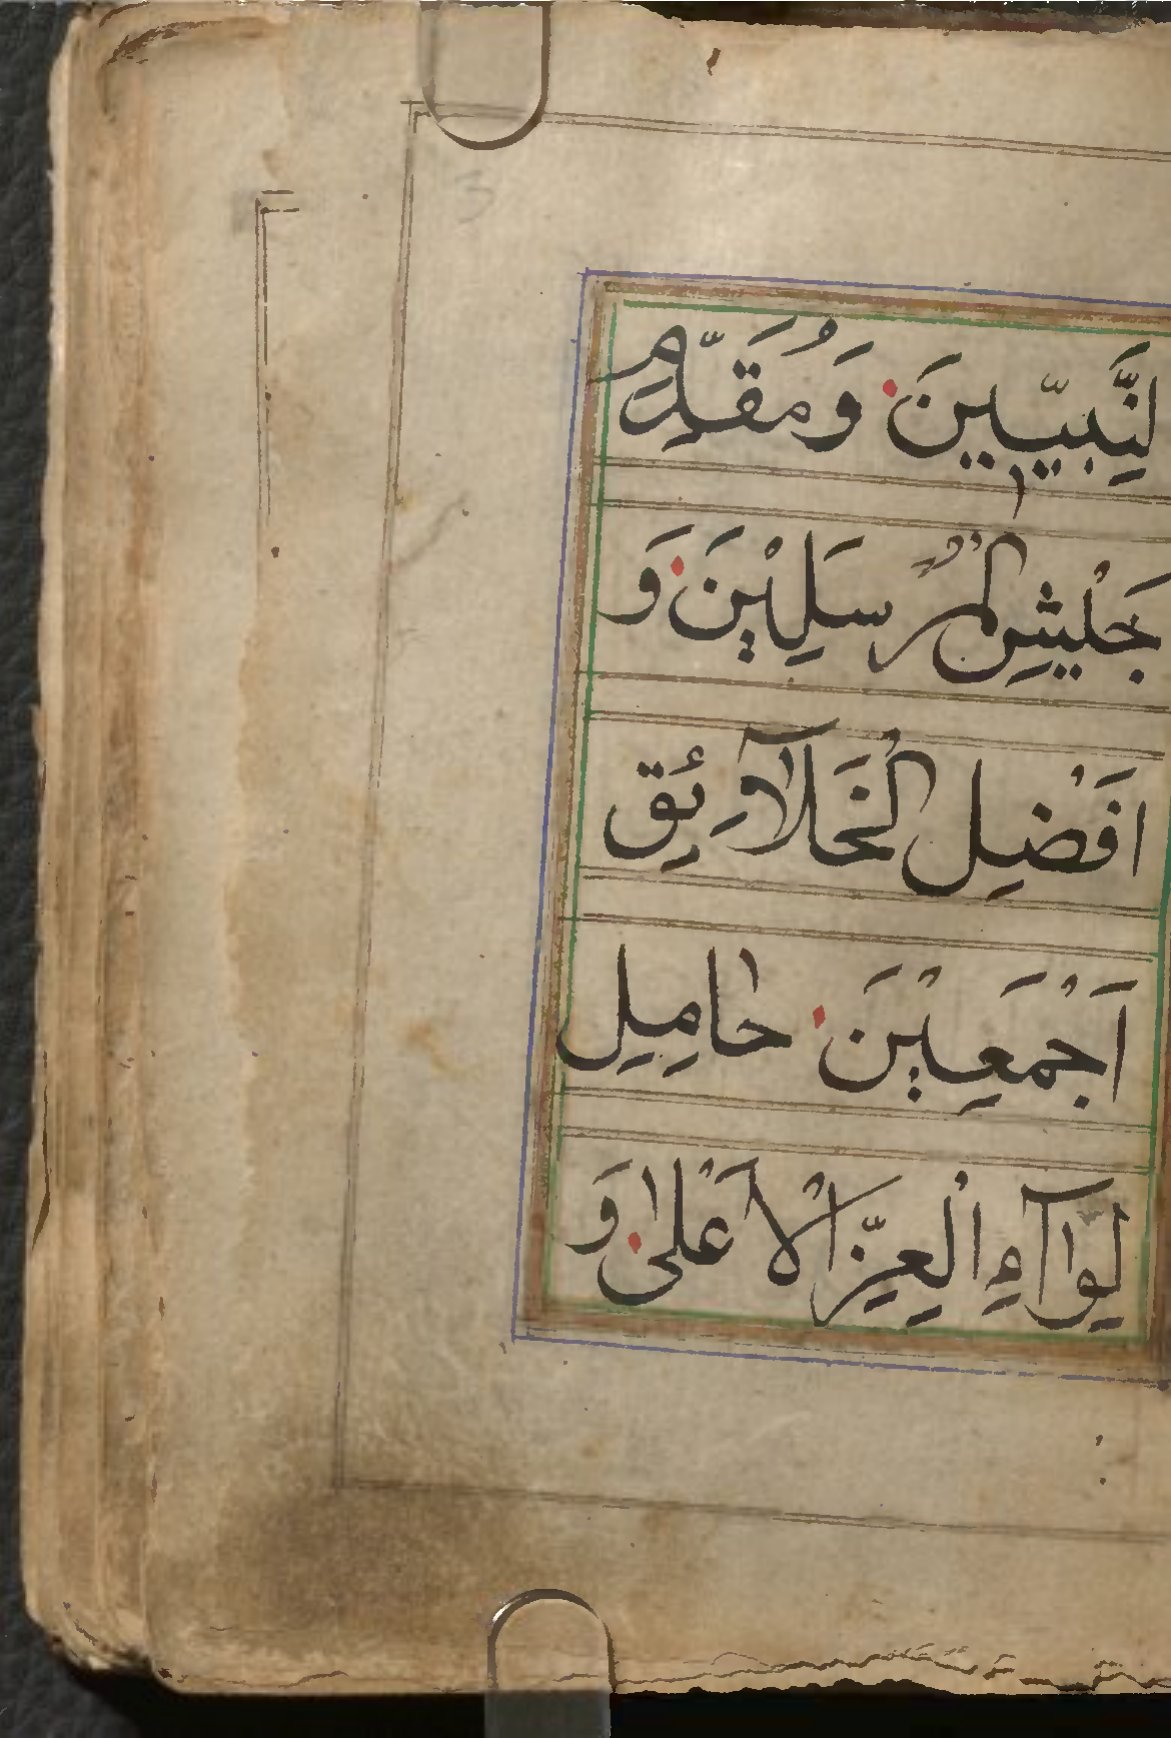 لنَّبِيّٖينَ وَمُقَدَّمِ
جَيْشِ الْمُرْسَلِيْنَ وَ
اَفْضَلِ الْخَلَآئِقِ
اَجْمَعِيْنَ حَامِلِ
لِوَآءِ الْعِزِّ الْاَعْلٰى وَ
3